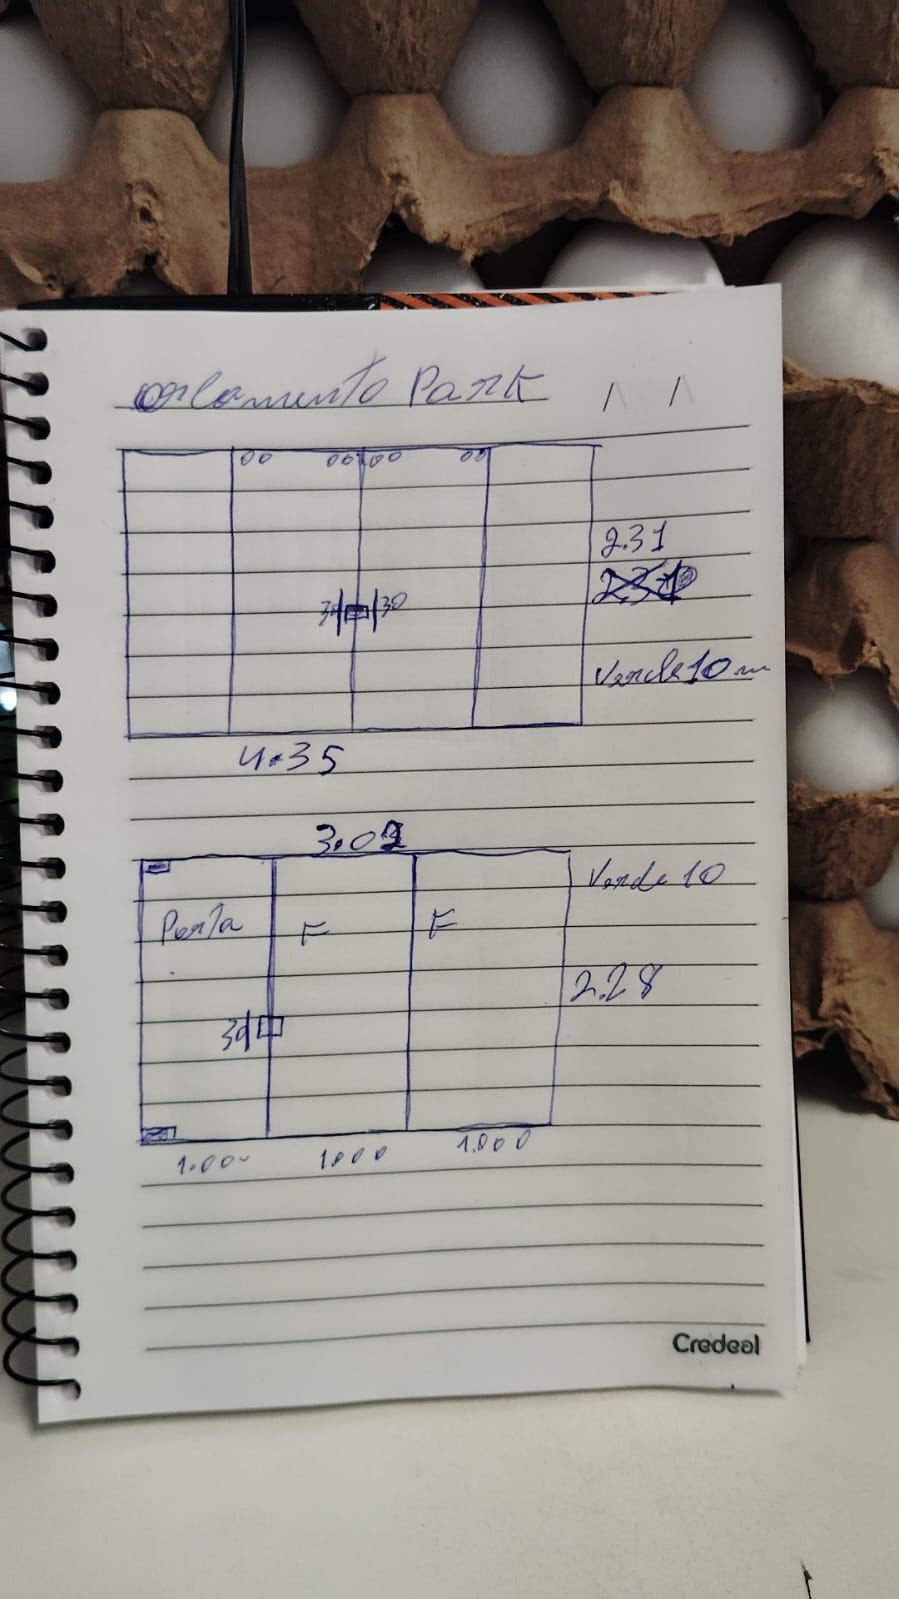 orlamento Park
00 00 00 00
2.31
30 30
Verde 10 m
4.35
3.02
Verde 10
Porta F F
2.28
30
1.000 1.000 1.000
Credeal